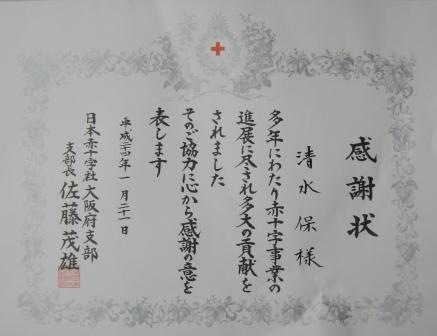 感謝状
清水保様
多年にわたり赤十字事業の
進展に尽され多大の貢献を
されました
そのご協力に心から感謝の意を
表します
平成二十四年一月二十一日
日本赤十字社大阪府支部
支部長 佐藤茂雄